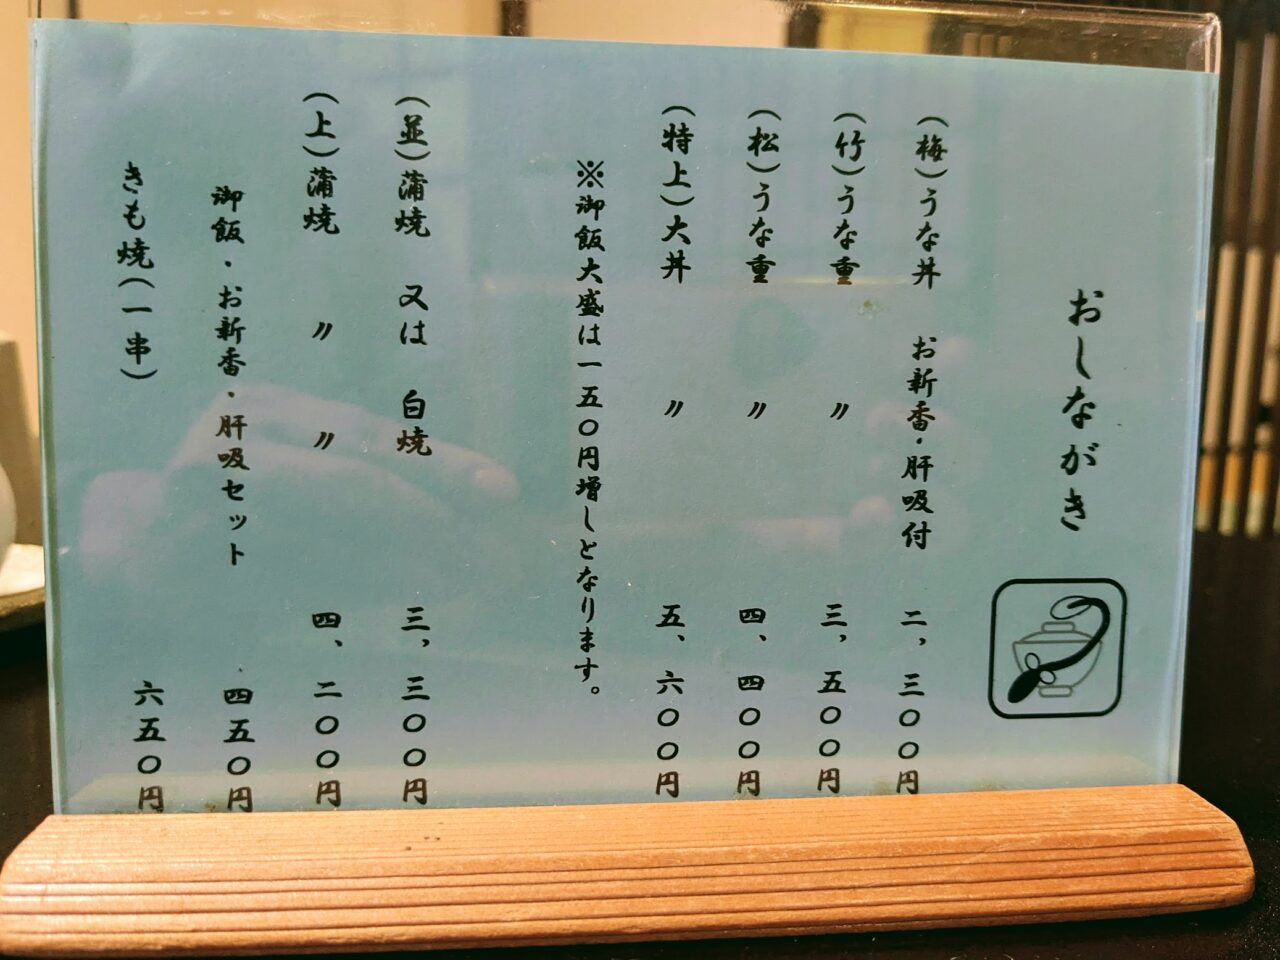 おしながき
（梅）うな丼 お新香・肝吸付 二、三〇〇円
（竹）うな重 〃 三、五〇〇円
（松）うな重 〃 四、四〇〇円
（特上）大丼 〃 五、六〇〇円
※御飯大盛は一五〇円増しとなります。
（並）蒲焼 又は 白焼 三、三〇〇円
（上）蒲焼 〃 〃 四、二〇〇円
御飯・お新香・肝吸セット 四五〇円
きも焼（一串） 六五〇円